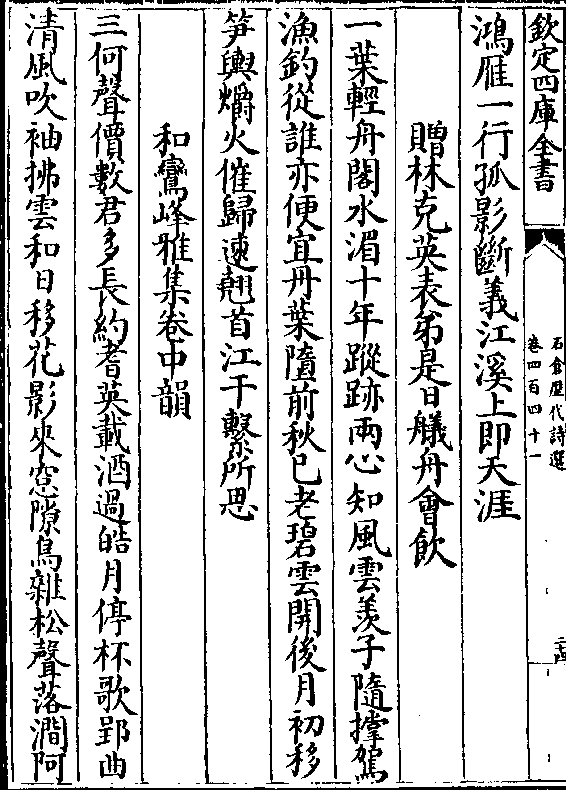 欽定四庫全書
石倉歷代詩選
卷四百四十一
鴻雁一行孤影斷義江溪上即天涯
贈林克英表弟是日艤舟會飲
一葉輕舟閣水湄十年蹤跡兩心知風雲羨子隨摶鴐
漁釣從誰亦便宜丹葉墮前秋已老碧雲開後月初移
笋輿爝火催歸速翹首江干繫所思
和鸞峰雅集卷中韻
三何聲價數君多長約耆英載酒過皓月停杯歌郢曲
清風吹袖拂雲和日移花影來窓隙鳥雜松聲落澗阿